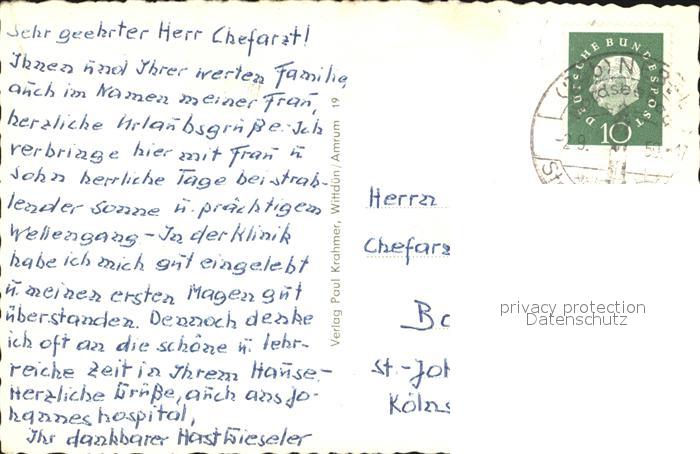 Sehr geehrter Herr Chefarzt!
Ihnen und Ihrer werten Familie,
auch im Namen meiner Frau,
herzliche Urlaubsgrüße. Ich
verbringe hier mit Frau u
Sohn herrliche Tage bei strah-
lender Sonne u. prächtigem
Wellengang – In der Klinik
habe ich mich gut eingelebt
u. meinen ersten Magen gut
überstanden. Dennoch denke
ich oft an die schöne u. lehr-
reiche Zeit in Ihrem Hause –
Herzliche Grüße, auch ans Jo-
hanneshospital,
Ihr dankbarer
Verlag Paul Krahmer, Wittdün/Amrum 19
DEUTSCHE BUNDESPOST
10
Herrn
Chefarz
Bo
St.-Joh
Kölns
privacy protection
Datenschutz